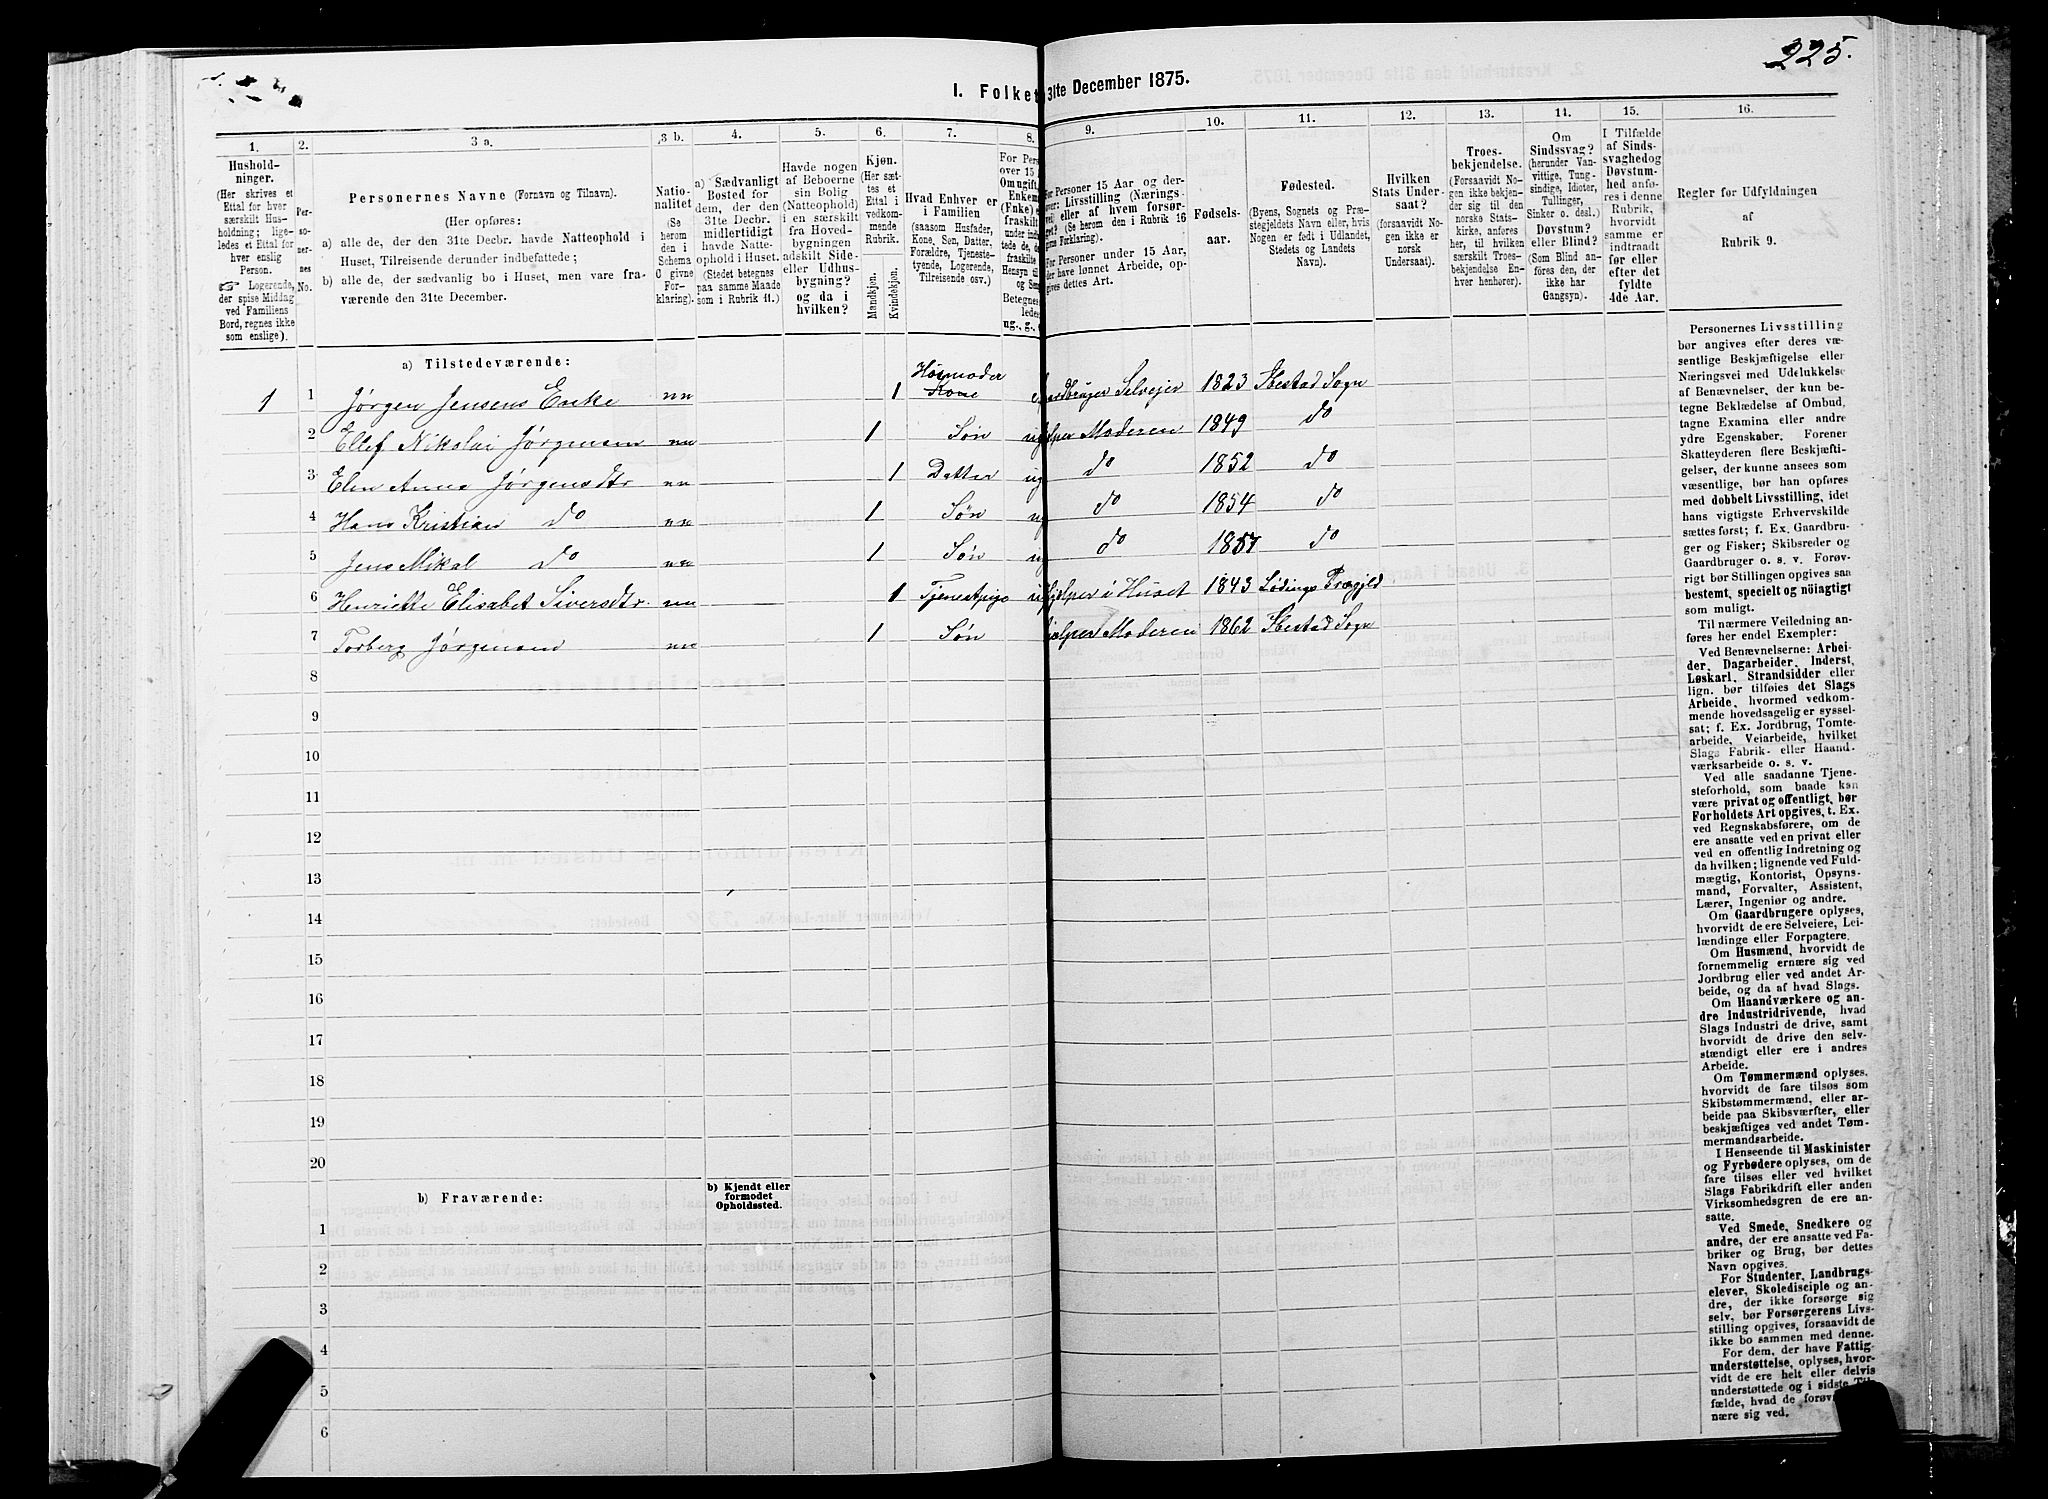 225.
I. Folket
31te December 1875.
1. 2. 3 a. 3 b. 4. 5. 6. 7. 8. 9. 10. 11. 12. 13. 14. 15. 16.
Hushold-
ninger.
(Her skrives et
Ettal for hver
særskilt Hus-
holdning; lige-
ledes et Ettal for
hver enslig
Person.
Logerende,
der spise Middag
ved Familiens
Bord, regnes ikke
som enslige).
Per-
so-
ner-
nes
No.
Personernes Navne (Fornavn og Tilnavn).
(Her opføres:
a) alle de, der den 31te Decbr. havde Natteophold i
Huset, Tilreisende derunder indbefattede;
b) alle de, der sædvanlig bo i Huset, men vare fra-
værende den 31te December.
Natio-
nalitet
(Se
herom
den i
Schema
C givne
For-
klaring).
a) Sædvanligt
Bosted for
dem, der den
31te Decbr.
midlertidigt
havde Natte-
ophold i Huset.
(Stedet betegnes
paa samme Maade
som i Rubrik 11.)
Havde nogen
af Beboerne
sin Bolig
(Natteophold)
i en særskilt
fra Hoved-
bygningen
adskilt Side-
eller Udhus-
bygning?
og da i
hvilken?
Kjøn.
(Her sæt-
tes et
Ettal i
vedkom-
mende
Rubrik.
Mandkjøn.
Kvindekjøn.
Hvad Enhver er
i Familien
(saasom Husfader,
Kone, Søn, Datter,
Forældre, Tjeneste-
tyende, Logerende,
Tilreisende osv.)
For Pers
over 15
Om ugift,
Enkem
(Fnke)
fraskilt
under ind
tede de,
fraskilte
Hensyn til
og Sen
Betegnes
ledes
ug., g.,
For Personer 15 Aar og der-
over: Livsstilling (Nærings-
vei) eller af hvem forsør-
get? (Se herom den i Rubrik 16
givne Forklaring).
For Personer under 15 Aar,
der have lønnet Arbeide, op-
gives dettes Art.
Fødsels-
aar.
Fødested.
(Byens, Sognets og Præ-
stegjeldets Navn eller, hvis
Nogen er født i Udlandet,
Stedets og Landets
Navn).
Hvilken
Stats Under-
saat?
(forsaavidt No-
gen ikke er
norsk
Undersaat).
Troes-
bekjendelse.
(Forsaavidt No-
gen ikke bekjen-
der sig til den
norske Stats-
kirke, anføres
her, til hvilken
særskilt Troes-
bekjendelse En-
hver henhører).
Om
Sindssvag?
(herunder Van-
vittige, Tung-
sindige, Idioter,
Tullinger,
Sinker o. desl.)
Døvstum?
eller Blind?
(Som Blind an-
føres den, der
ikke har
Gangsyn).
I Tilfælde
af Sinds-
svaghed og
Døvstum-
hed anfø-
res i denne
Rubrik,
hvorvidt
samme er
indtraadt
før eller
efter det
fyldte
4de Aar.
Regler for Udfyldningen
af
Rubrik 9.
a) Tilstedeværende:
1 1 Jørgen Jensens Enke nn 1 Husmoder Kone Gaardbruger Selveier 1823 Ibestad Sogn
2 Ellef Nikolai Jørgensen nn 1 Søn ug hjelper Moderen 1849 do
3 Elen Anna Jørgensdtr nn 1 Datter ug do 1852 do
4 Hans Kristian do nn 1 Søn ug do 1854 do
5 Jens Mikal do nn 1 Søn ug do 1857 do
6 Henriette Elisabet Siversdtr. nn 1 Tjenestpige ug hjelper i Huset 1843 Lødings Prægjeld
7 Torberg Jørgensen nn 1 Søn hjelper Moderen 1862 Ibestad Sogn
8
9
10
11
12
13
14
15
16
17
18
19
20
b) Fraværende:
b) Kjendt eller
formodet
Opholdssted.
1
2
3
4
5
6
Personernes Livsstilling
bør angives efter deres væ-
sentlige Beskjæftigelse eller
Næringsvei med Udelukkelse
af Benævnelser, der kun be-
tegne Beklædelse af Ombud,
tagne Examina eller andre
ydre Egenskaber. Forener
Skatteyderen flere Beskjæfti-
gelser, der kunne ansees som
væsentlige, bør han opføres
med dobbelt Livsstilling, idet
hans vigtigste Erhvervskilde
sættes først; f. Ex. Gaardbru-
ger og Fisker; Skibsreder og
Gaardbruger o. s. v. Forøv-
rigt bør Stillingen opgives saa
bestemt, specielt og nöiagtigt
som muligt.
Til nærmere Veiledning an-
føres her endel Exempler:
Ved Benævnelserne: Arbei-
der, Dagarbeider, Inderst,
Løskarl, Strandsidder eller
lign. bør tilføies det Slags
Arbeide, hvormed vedkom-
mende hovedsagelig er syssel-
sat; f. Ex. Jordbrug, Tomte-
arbeide, Veiarbeide, hvilket
Slags Fabrik- eller Haand-
værksarbeide o. s. v.
Ved alle saadanne Tjene-
steforhold, som baade kan
være privat og offentligt, bør
Forholdets Art opgives, t. Ex.
ved Regnskabsførere, om de
ere ansatte ved en privat eller
ved en offentlig Indretning og
da hvilken; lignende ved Fuld-
mægtig, Kontorist, Opsyns-
mand, Forvalter, Assistent,
Lærer, Ingeniør og andre.
Om Gaardbrugere oplyses,
hvorvidt de ere Selveiere, Lei-
lændinge eller Forpagtere.
Om Husmænd, hvorvidt de
fornemmelig ernære sig ved
Jordbrug eller ved andet Ar-
beide, og da af hvad Slags.
Om Haandværkere og an-
dre Industridrivende, hvad
Slags Industri de drive, samt
hvorvidt de drive den selv-
stændigt eller ere i andres
Arbeide.
Om Tømmermænd oplyses,
hvorvidt de fare tilsøs som
Skibstømmermænd, eller ar-
beide paa Skibsværfter, eller
beskjæftiges ved andet Tøm-
mermandsarbeide.
I Henseende til Maskinister
og Fyrbødere oplyses, om de
fare tilsøs eller ved hvilket
Slags Fabrikdrift eller anden
Virksomhedsgren de ere an-
satte.
Ved Smede, Snedkere og
andre, der ere ansatte ved Fa-
briker og Brug, bør dettes
Navn opgives.
For Studenter, Landbrugs-
elever, Skoledisciple og an-
dre, der ikke forsørge sig
selv, bør Forsørgerens Livs-
stilling opgives, forsaavidt de
ikke bo sammen med denne.
For dem, der have Fattig-
understøttelse, oplyses, hvor-
vidt de ere helt eller delvis
understøttede og i sidste Til-
fælde, hvad de forøvrigt
nære sig ved.